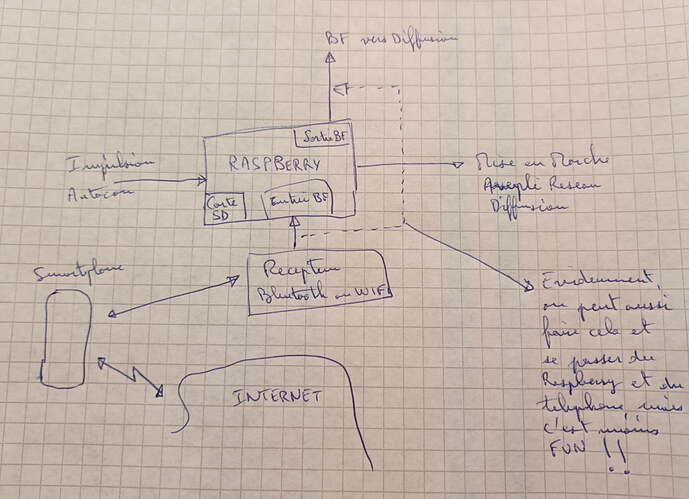 BF vers Diffusion
Sortie BF
RASPBERRY
Impulsion
Autocom
Mise en Marche
Ampli Reseau
Diffusion
Carte
SD
Entrée BF
Smartphone
Recepteur
Bluetooth ou WIFI
INTERNET
Evidemment,
on peut aussi
faire cela et
se passer du
Raspberry et du
telephone, mais
c'est moins
FUN !!